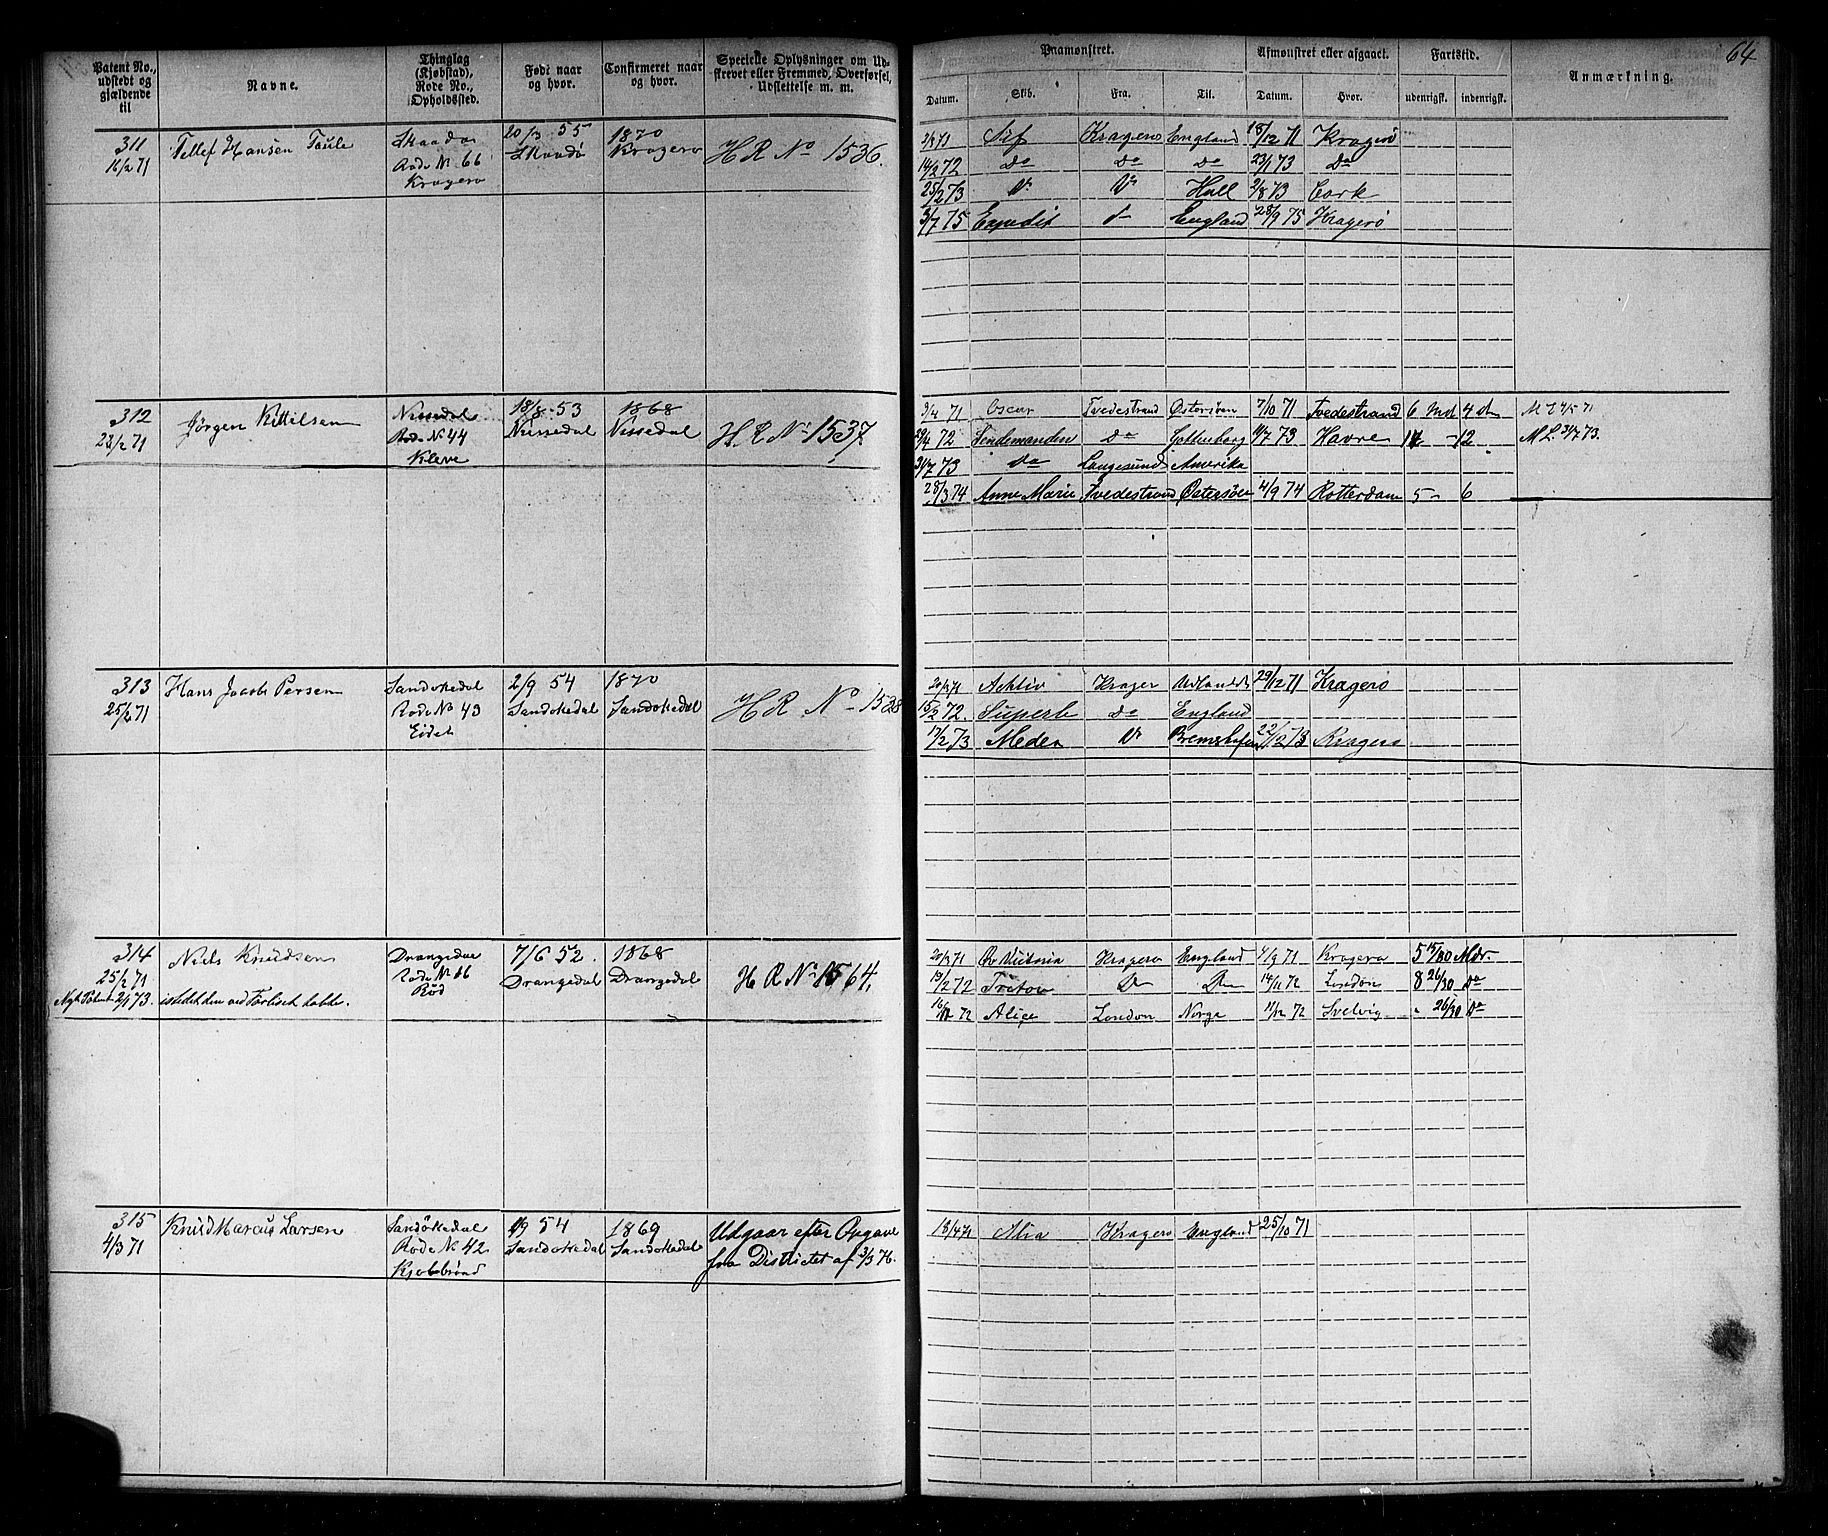 64
Patent No., udstedt og gjældende til
Navne.
Thinglag (Kjøbstad), Rode No., Opholdssted.
Født naar og hvor.
Confirmeret naar og hvor.
Specielle Oplysninger om Udskrevet eller Fremmed, Overførsel, Udslettelse m. m.
Paamønstret.
Afmønstret eller afgaaet.
Fartstid.
Anmærkning.
Datum. Skib. Fra. Til. Datum. Hvor. udenrigsk. indenrigsk.
311 Tellef Hansen Skaadø 20/3 55 1870 H R No 1536.
16/2 71 Rode No 66 Skaadø Kragerø
Kragerø
Kragerø England 18/12 71 Kragerø
14/2 72 Do Do Do 23/1 73 Do
25/2 73 Do Do Hull 2/8 73 Cork
3/7 75 Expedit England 28/9 75 Kragerø
312 Jørgen Kittilsen Nissedal 18/8 53 1868 H.R No 1537
23/2 71 Rode No 44 Nissedal Nissedal
Kleve
3/4 71 Oscar Tvedestrand Østersøen 7/10 71 Tvedestrand 6 Md 4 d
Do Gottenborg 11/7 73 Havre 12 M L. 31/7 73.
31/7 73 Do Langesund Amerika
28/3 74 Anne Marie Tvedestrand Østersøen 4/9 74 Rotterdam 5 - 6
313 Hans Jacob Persen Sandøkedal 2/9 54 1870 H R No 1538
25/2 71 Rode No 43 Sandøkedal Sandøkedal
Eidet
20/3 71 Aktiv Krager Udlandet 29/12 71 Kragerø
15/2 72. Superb Do England
17/2 73 Medea Do Bremerhafen 22/12 73 Kragerø
314 Niels Knudsen Drangedal 7/6 52. 1868 H R No 1564.
25/2 71 Rode No 86 Drangedal Drangedal
Nyt Patent 2/1 73. istedetden ved Forlis tabte. Rød
20/3 71 Victoria Kragerø England 4/9 71 Kragerø 5 15/30 Mdr.
19/2 72 Triton Do Do 14/11 72 London 8 26/30 Do
16/11 72 Alice London Norge 11/12 72 Svelvig " 26/30 Do
315 Knud Marcus Larsen Sandøkedal 54 1869 Udgaar efter Opgave
4/3 71 Rode No 42 Sandøkedal Sandøkedal fra Districtet af 3/3 76.
Kjøbbrønd
18/4 71 Kragerø England 25/10 71